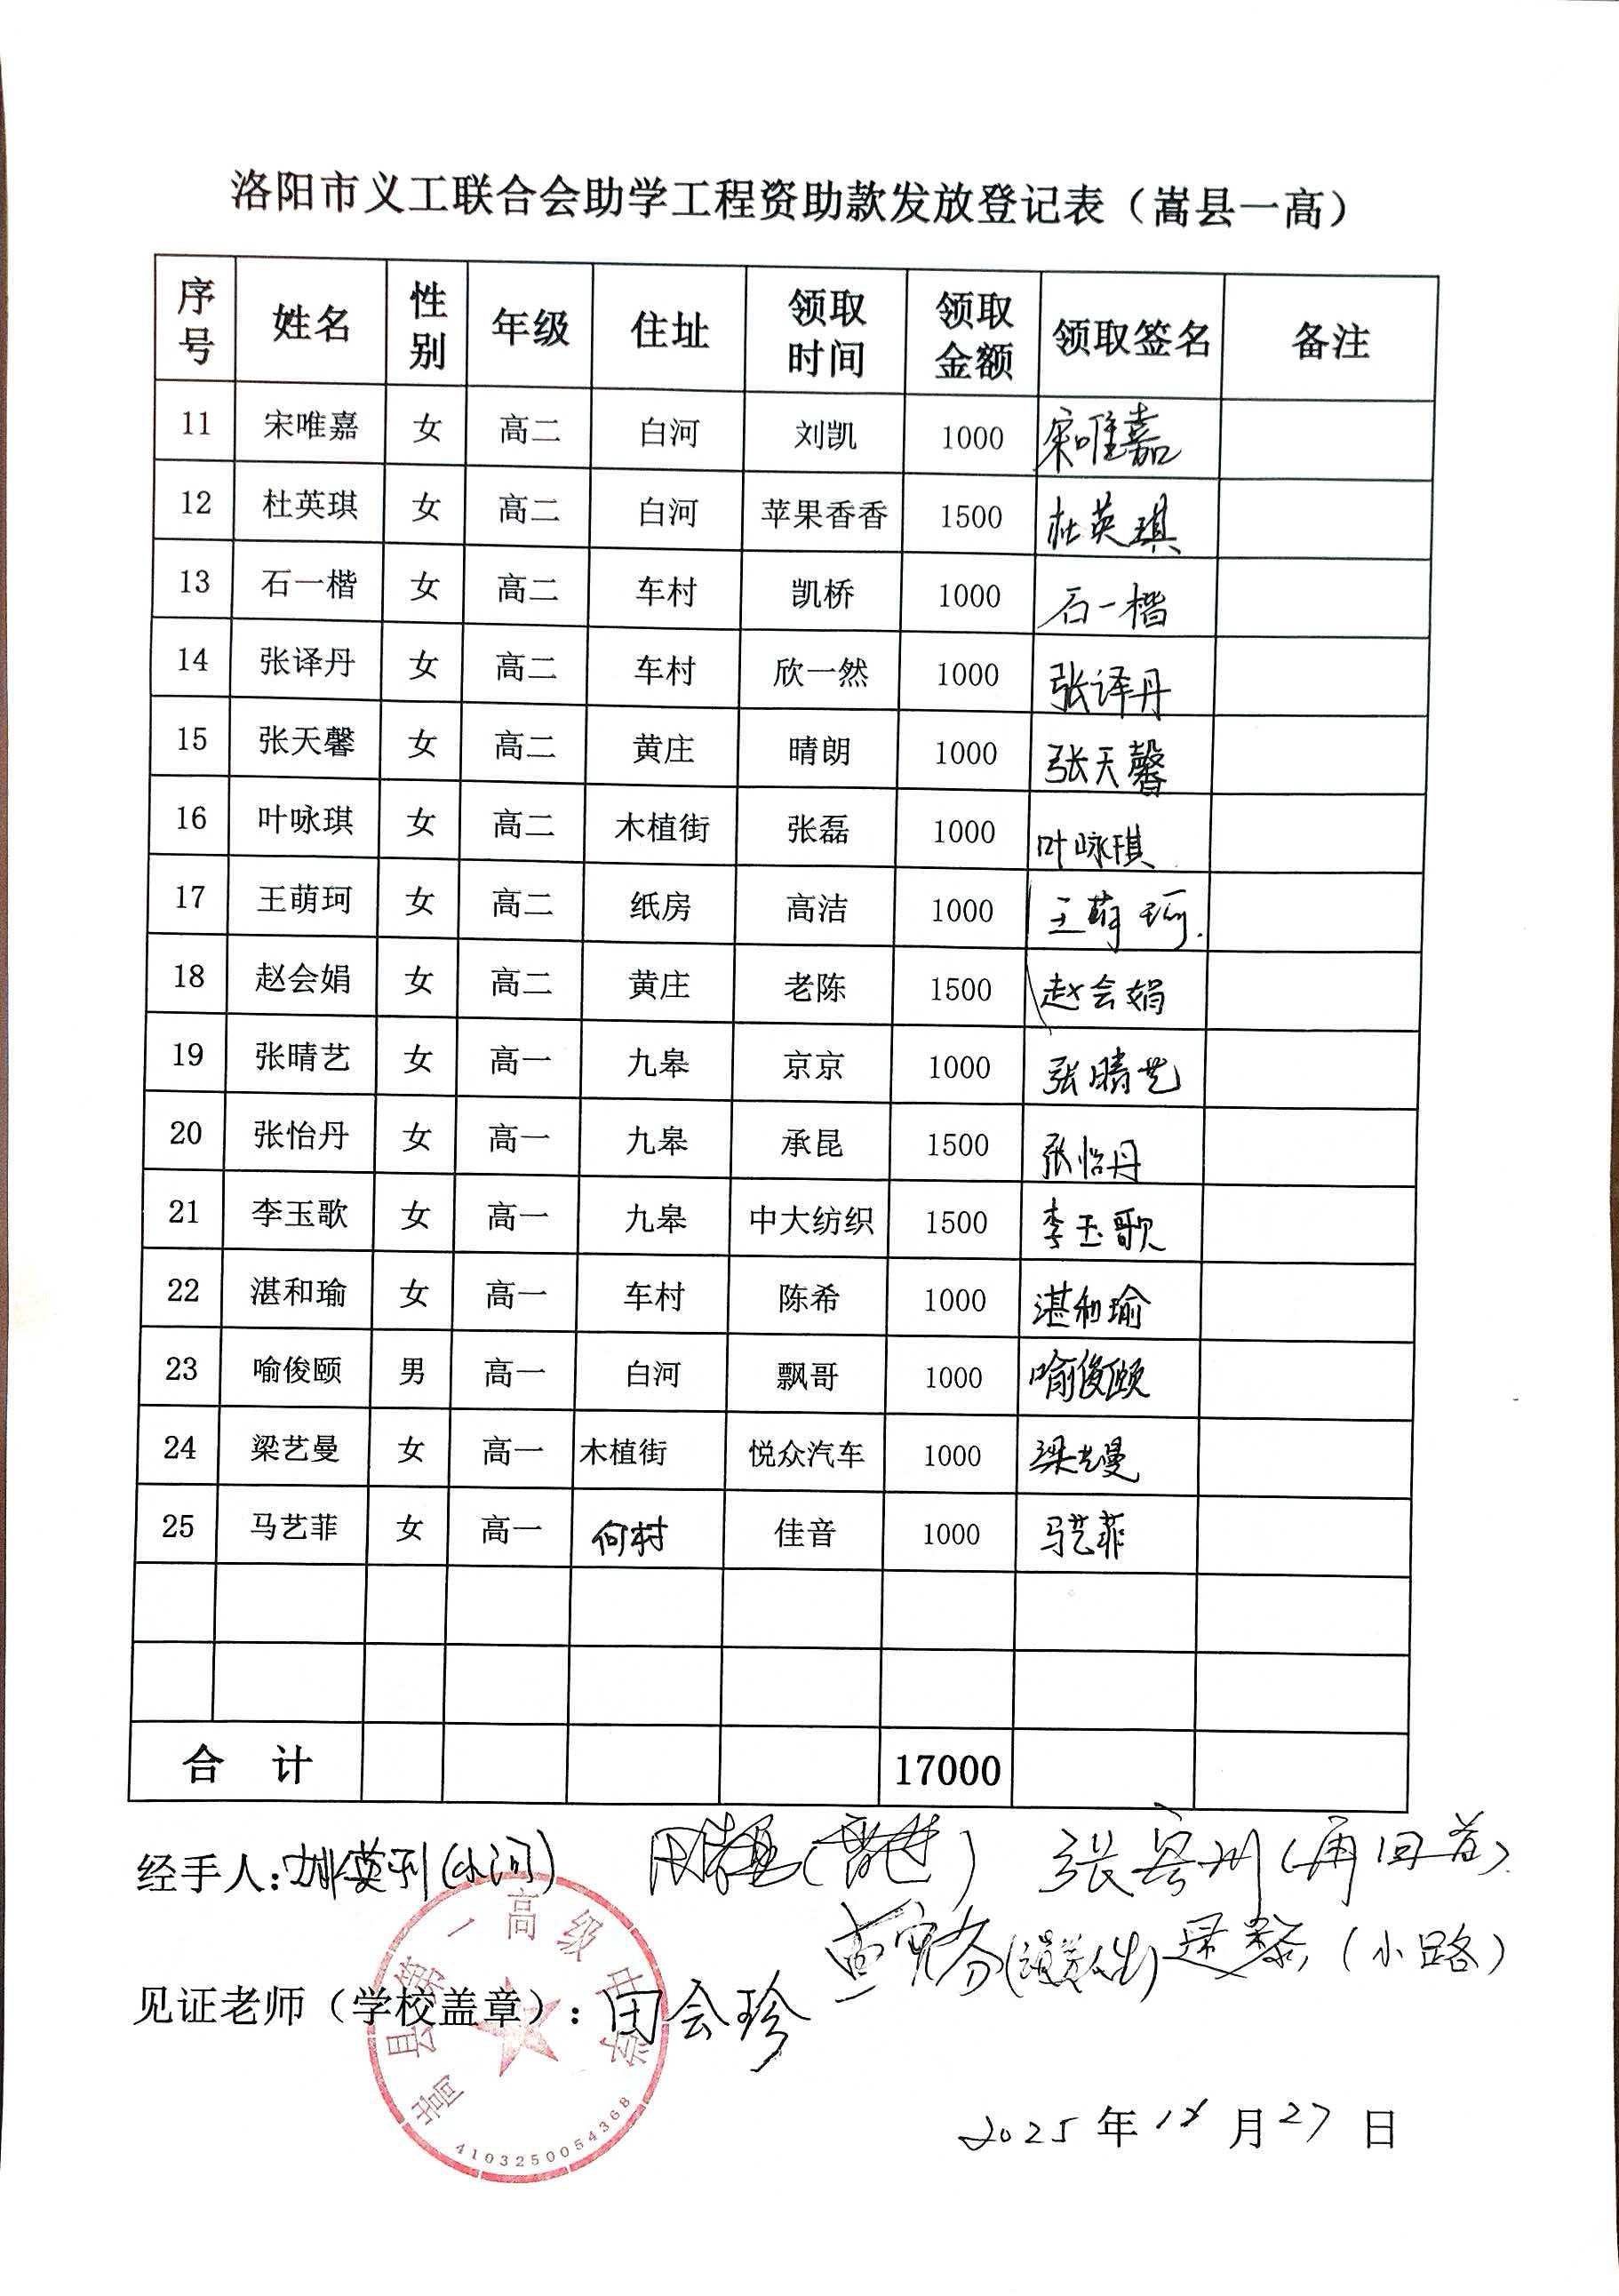 洛阳市义工联合会助学工程资助款发放登记表（嵩县一高）
序号 姓名 性别 年级 住址 领取时间 领取金额 领取签名 备注
11 宋唯嘉 女 高二 白河 刘凯 1000 宋唯嘉
12 杜英琪 女 高二 白河 苹果香香 1500 杜英琪
13 石一楷 女 高二 车村 凯桥 1000 石一楷
14 张译丹 女 高二 车村 欣一然 1000 张译丹
15 张天馨 女 高二 黄庄 晴朗 1000 张天馨
16 叶咏琪 女 高二 木植街 张磊 1000 叶咏琪
17 王萌珂 女 高二 纸房 高洁 1000 王萌珂
18 赵会娟 女 高二 黄庄 老陈 1500 赵会娟
19 张晴艺 女 高一 九皋 京京 1000 张晴艺
20 张怡丹 女 高一 九皋 承昆 1500 张怡丹
21 李玉歌 女 高一 九皋 中大纺织 1500 李玉歌
22 湛和瑜 女 高一 车村 陈希 1000 湛和瑜
23 喻俊颐 男 高一 白河 飘哥 1000 喻俊颐
24 梁艺曼 女 高一 木植街 悦众汽车 1000 梁艺曼
25 马艺菲 女 高一 何村 佳音 1000 马艺菲
合计 17000
经手人: (小河) (再回首)
(小路)
见证老师（学校盖章）: 田会珍
嵩县第一高级中学
4103250054368
2025年12月27日